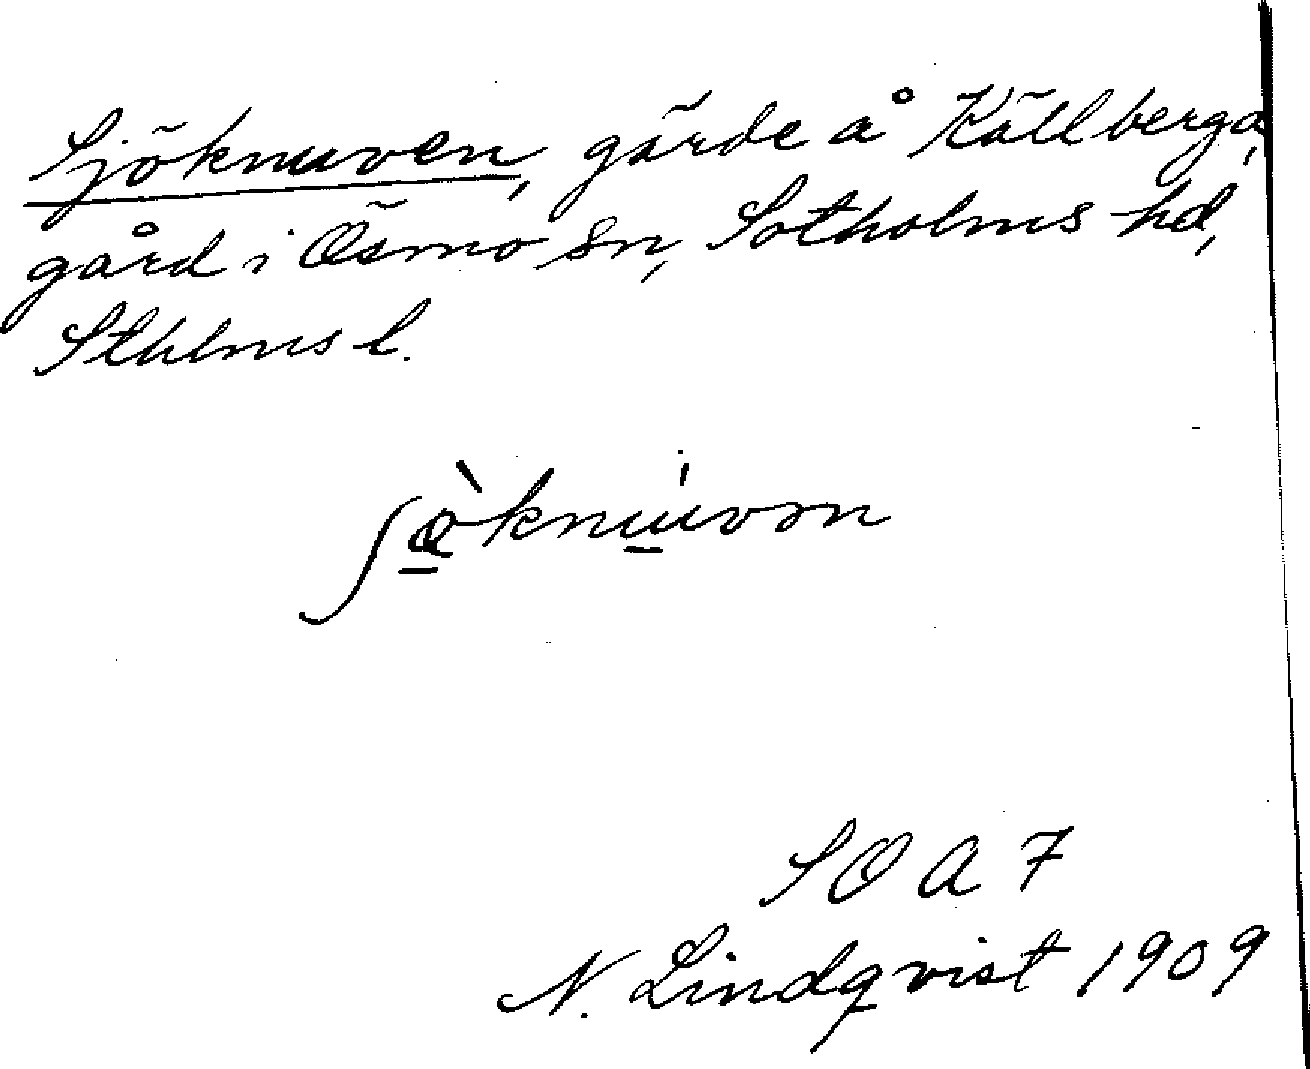 Sjöknuven, gärde å Källberga,
gård i Ösmo sn, Sotholms hd,
Sthlms l.
ʃö̀knu̇vən
SOA 7
N. Lindqvist 1909